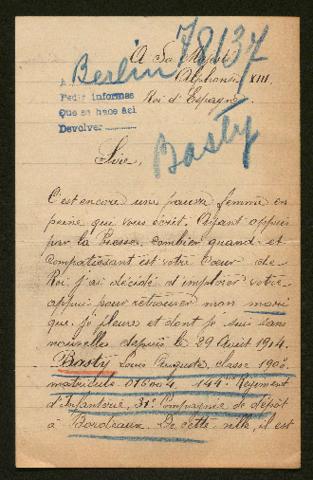 78137
A Sa Majesté
Berlin
Alphonse XIII,
A
Pedir informes
Roi d'Espagne.
Que se hace así
Devolver
Basty
Sire,
C'est encore une pauvre femme en
peine qui vous écrit. Ayant appris
par la Presse, combien grand et
compatissant est votre Cœur de
Roi, j'ai décidé d'implorer votre
appui pour retrouver mon mari
que je pleure et dont je suis sans
nouvelles depuis le 29 Août 1914.
Basty Louis Auguste, classe 1900,
matricule 016004, 144me Régiment
d'Infanterie, 31e Compagnie de dépôt
à Bordeaux. De cette ville, il est